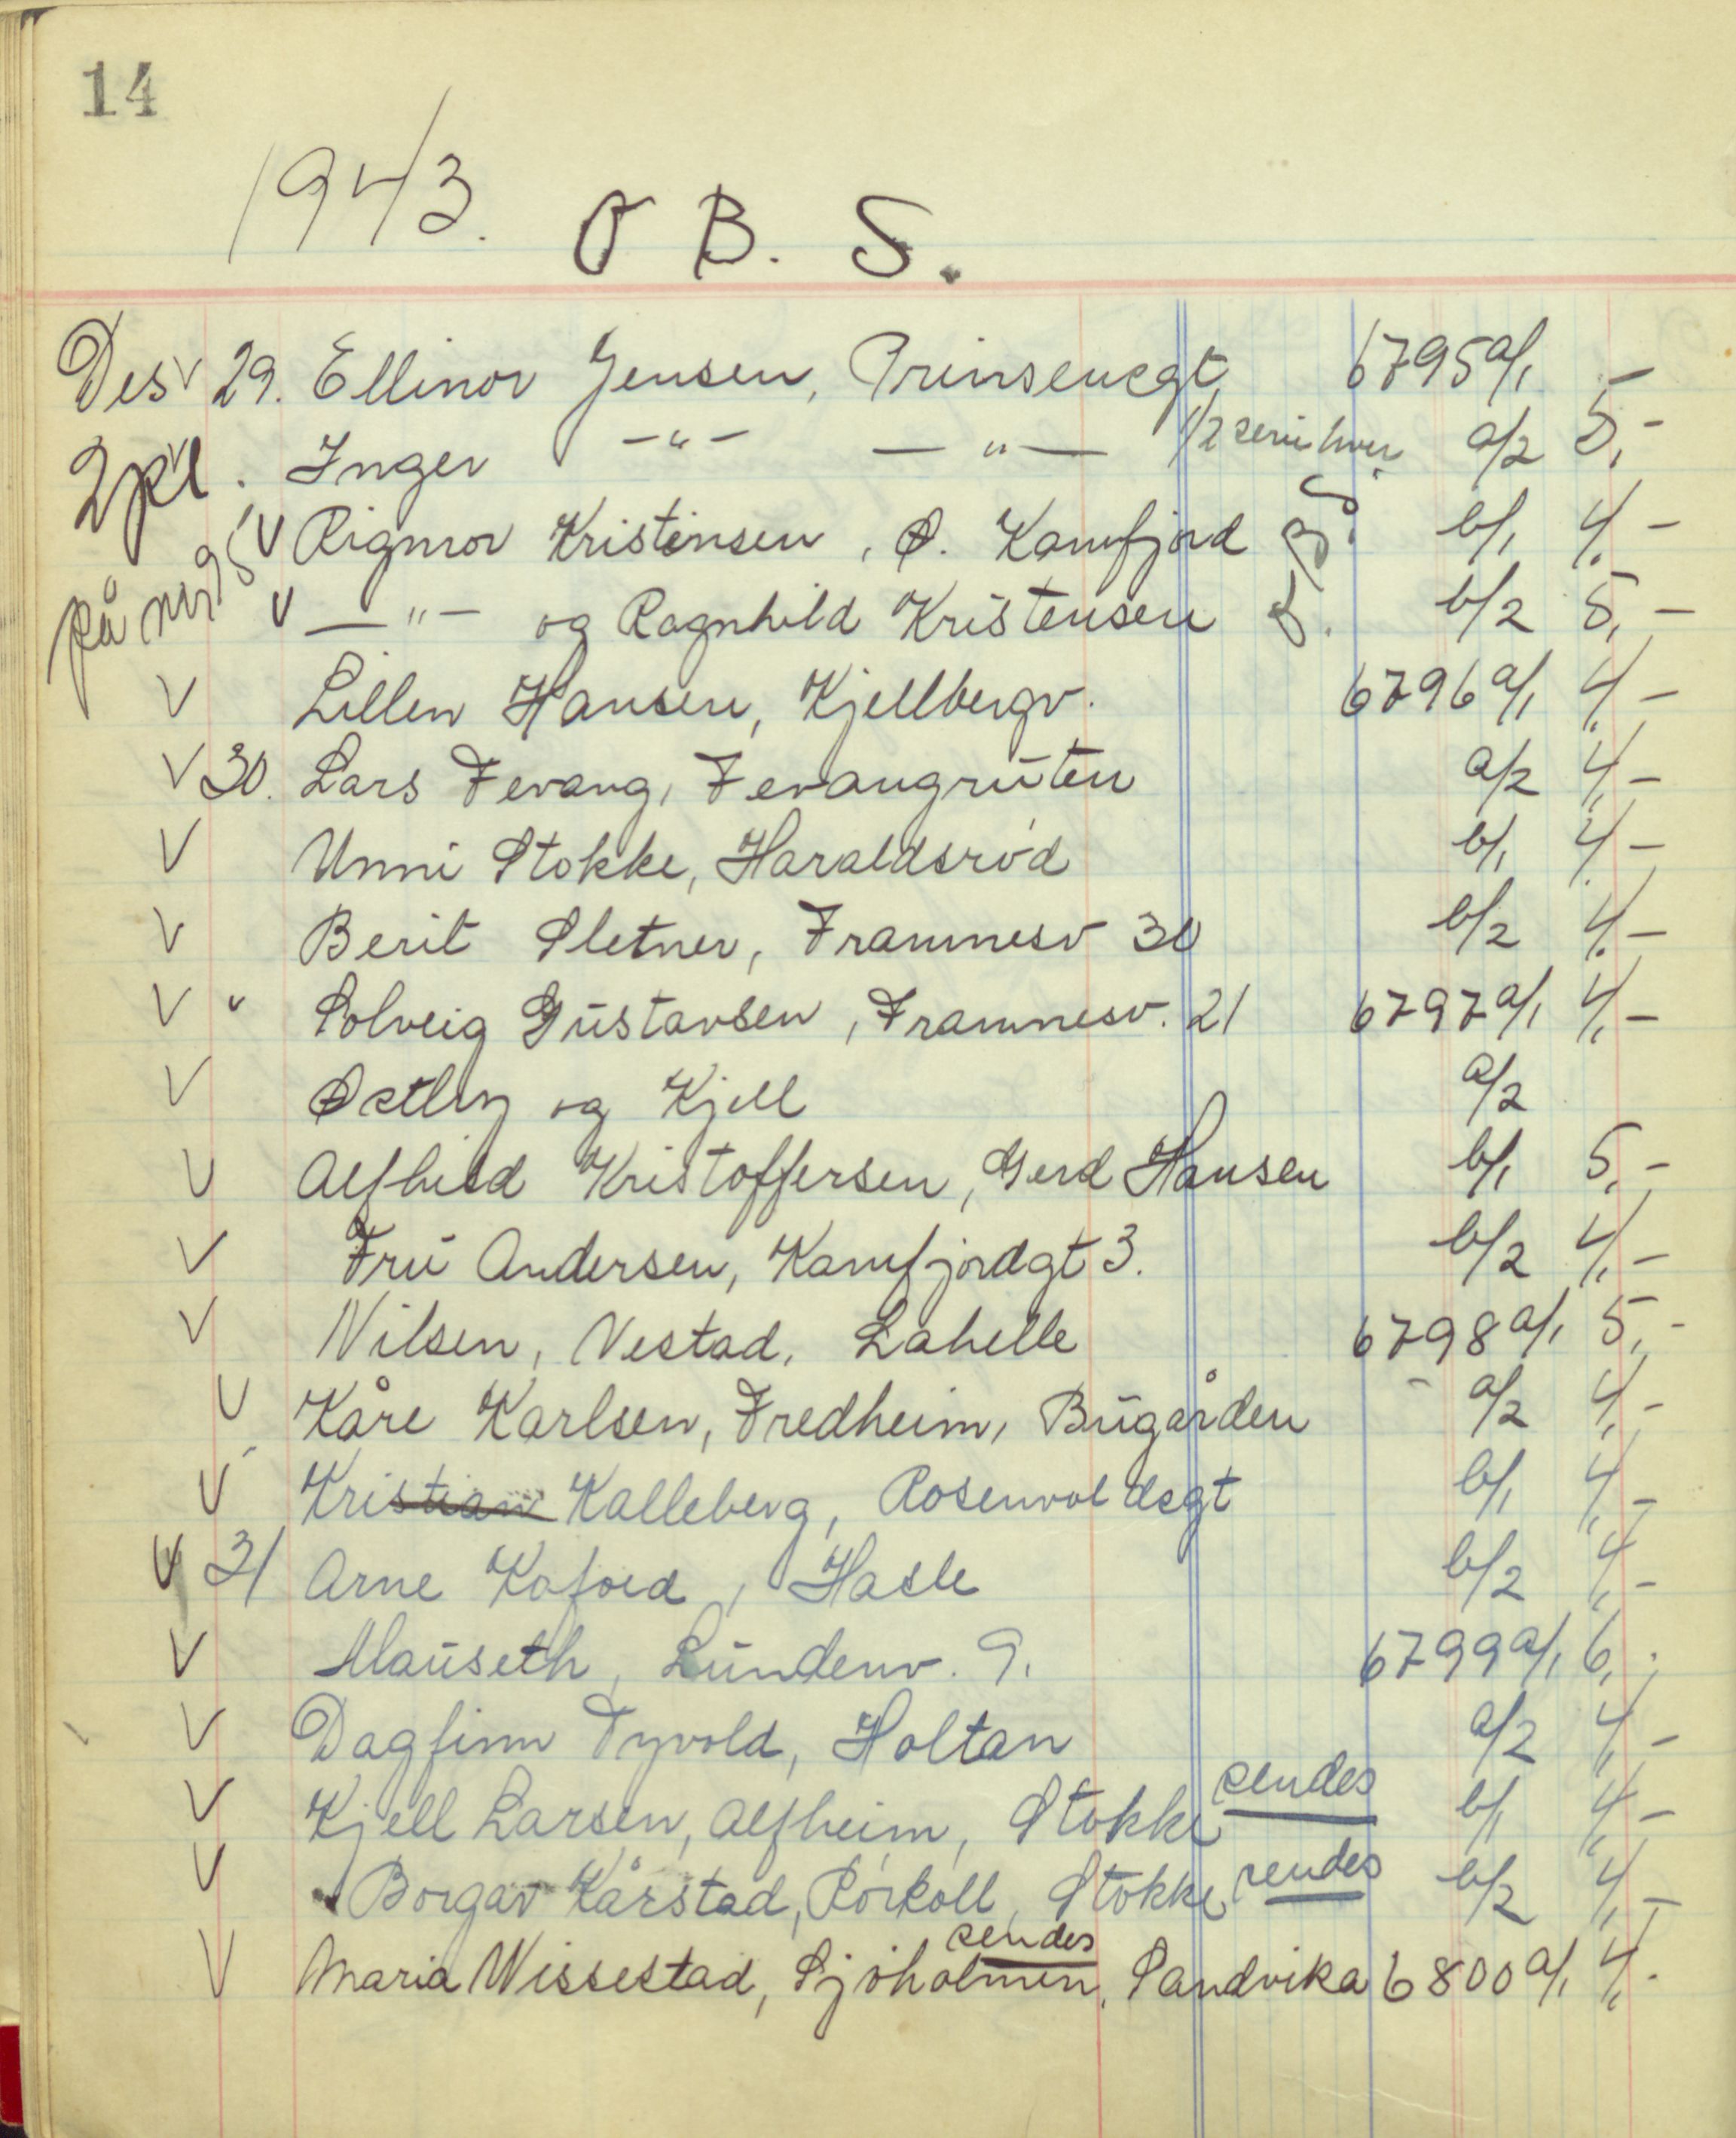 14
1943. O B. S.
Des 29. Ellinor Jensen, Prinsensgt 6795 a/1 -
2 pl. Inger -"- -"- 1/2 serie hver a/2 5,-
på neg. Rigmor Kristensen, Ø. Kamfjord b/1 4,-
-"- og Ragnhild Kristensen b/2 5,-
O. B. S.
Lillen Hansen, Kjellbergv. 6796 a/1 4,-
30. Lars Fevang, Fevangruten a/2 4,-
Unni Stokke, Haraldsrød b/1 4,-
Berit Sletner, Framnesv 30 b/2 4,-
" Solveig Gustavsen, Framnesv. 21 6797 a/1 4,-
Østby og Kjell a/2
Alfhild Kristoffersen, Gerd Hansen b/1 5,-
Fru Andersen, Kamfjordgt 3. b/2 4,-
Nilsen, Vestad, Lahelle 6798 a/1 5,-
Kåre Karlsen, Fredheim, Bugården a/2 4,-
Kristian Kalleberg, Rosenvoldsgt b/1 4,-
31 Arne Kofoed, Hasle b/2 4,-
Mauseth, Lundenv. 9. 6799 a/1 6,-
Dagfinn Tyvold, Holtan a/2 4,-
Kjell Larsen, Alfheim, Stokke sendes b/1 4,-
Borgar Kårstad, Rørkoll, Stokke sendes b/2 4,-
sendes
Maria Wissestad, Sjøholmen, Sandvika 6800 a/1 4,-